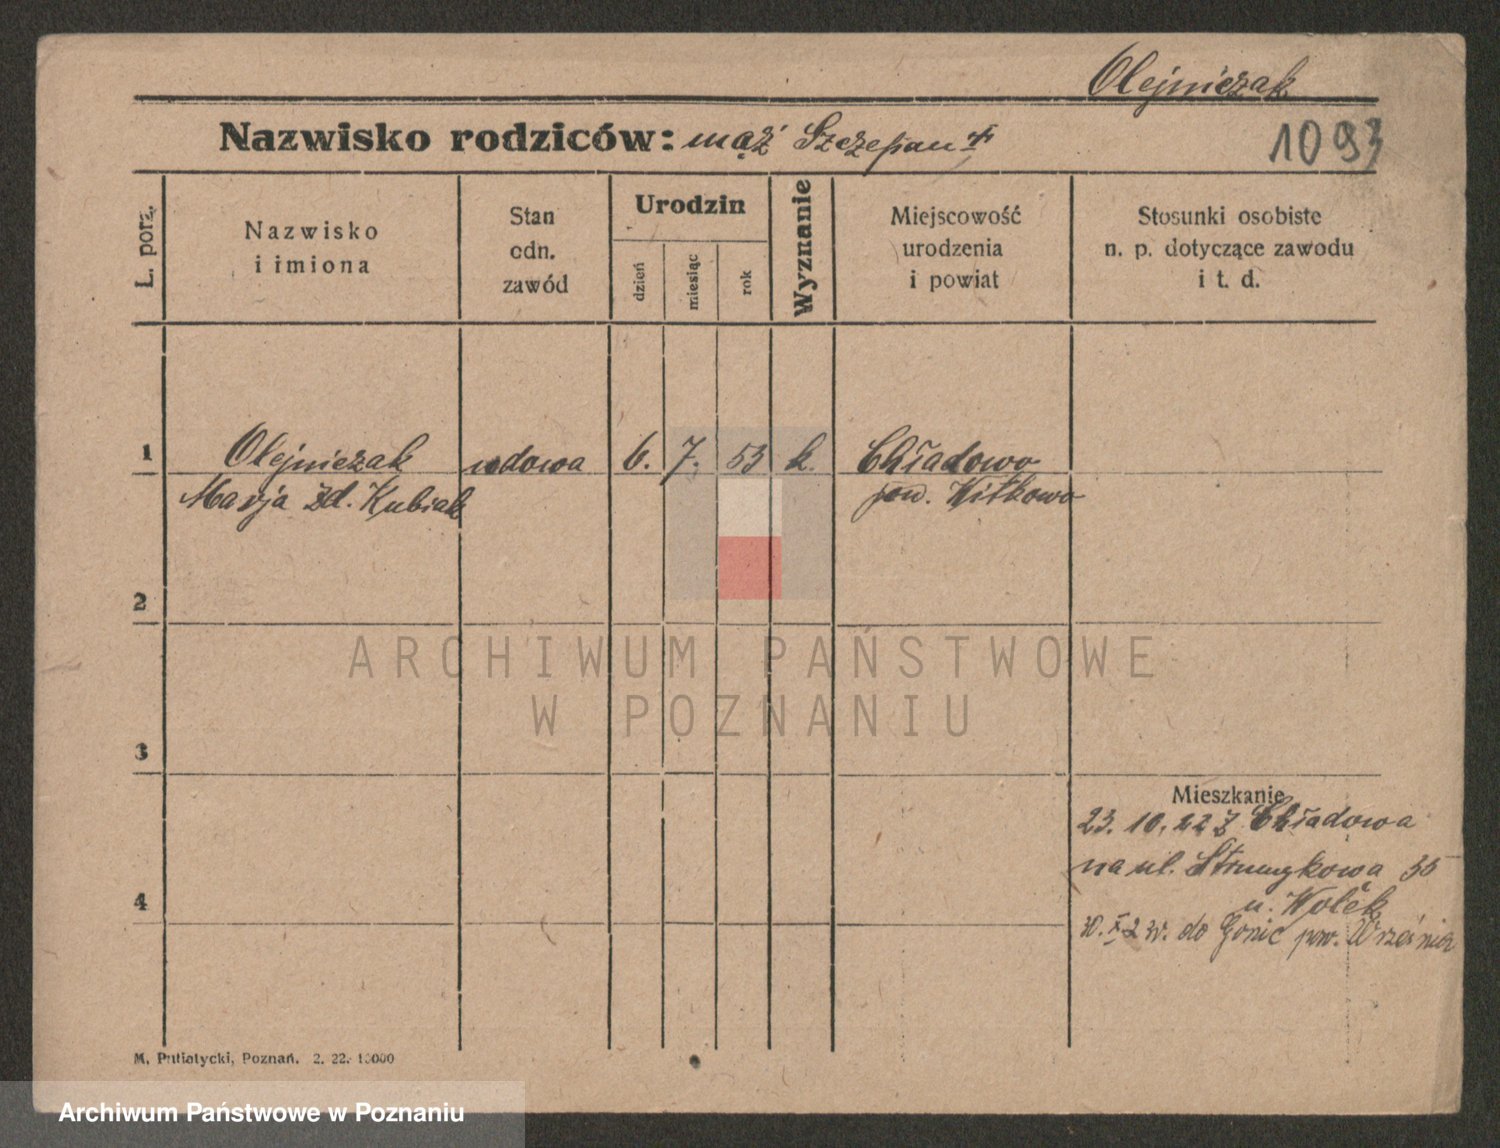 Olejniczak
Nazwisko rodziców: mąż Szczepan
1093
L. porz.
Nazwisko
i imiona
Stan
odn.
zawód
Urodzin
dzień
miesiąc
rok
Wyznanie
Miejscowość
urodzenia
i powiat
Stosunki osobiste
n. p. dotyczące zawodu
i t. d.
1
Olejniczak wdowa 6. 7. 53 k. Chładowo
Marja zd. Kubiak pow. Witkowo
2
ARCHIWUM PAŃSTWOWE
W POZNANIU
3
Mieszkanie
23. 10. 22 z Chładowa
na ul. Strumykowa 35
u. Wołek
4
do pow. Września
M. Putiatycki, Poznań. 2. 22. 10000
Archiwum Państwowe w Poznaniu